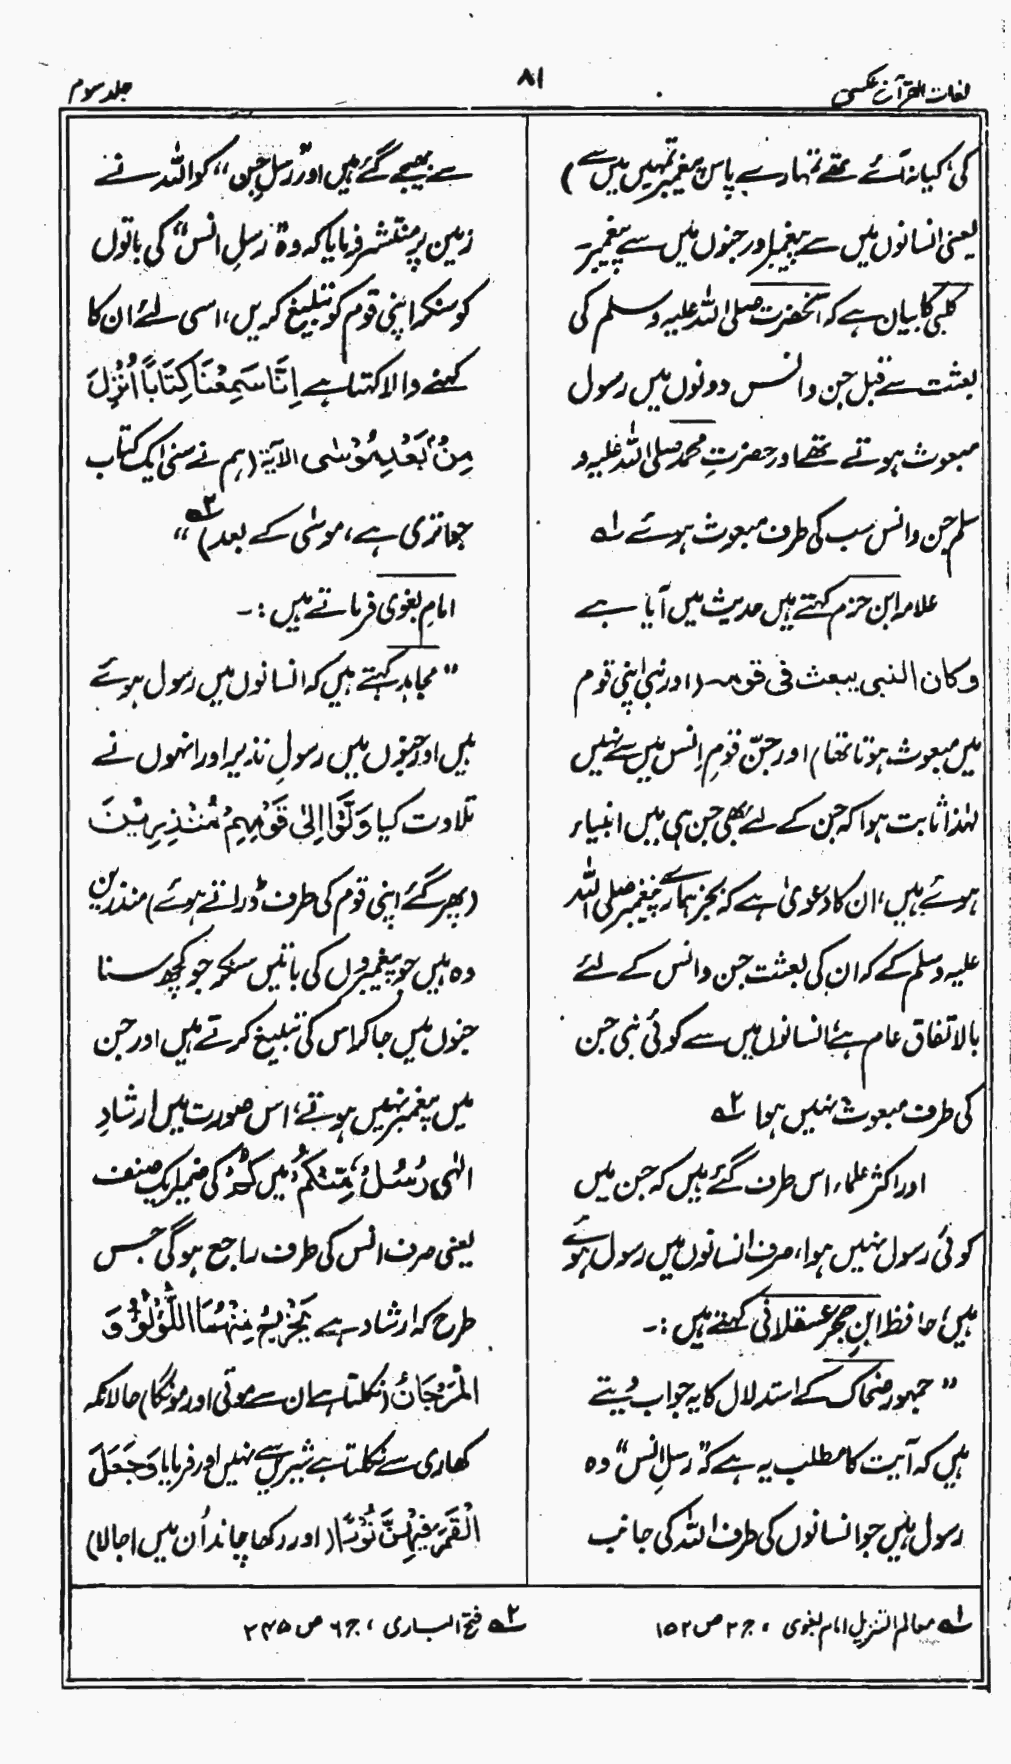 لغات القرآن عکسی
۸۱
جلد سوم
کی، کیا نہ آئے تھے تمہارے پاس پیغمبر تمہیں میں سے)
یعنی انسانوں میں سے پیغمبر اور جنوں میں سے پیغمبر۔
کلبی کا بیان ہے کہ آنحضرت صلی اللہ علیہ وسلم کی
بعثت سے قبل جن و انس دونوں میں رسول
مبعوث ہوتے تھے اور حضرتِ محمد صلی اللہ علیہ و
سلم جن و انس سب کی طرف مبعوث ہوئے ۱ـہ
علامہ ابن حزم کہتے ہیں حدیث میں آیا ہے
وکان النبی یبعث فی قومہ۔ (اور نبی اپنی قوم
میں مبعوث ہوتا تھا) اور جنّ قومِ اِنس میں سے نہیں
لہٰذا ثابت ہوا کہ جن کے لئے بھی جن ہی میں انبیاء
ہوئے ہیں، ان کا دعویٰ ہے کہ بجز ہمارے پیغمبر صلی اللہ
علیہ وسلم کے کہ ان کی بعثت جن و انس کے لئے
بالاتفاق عام ہے انسانوں میں سے کوئی نبی جن
کی طرف مبعوث نہیں ہوا ۲ـہ
اور اکثر علماء اس طرف گئے ہیں کہ جن میں
کوئی رسول نہیں ہوا، صرف انسانوں میں رسول ہوئے
ہیں، حافظ ابنِ حجر عسقلانی کہتے ہیں :۔
”جمہور ضحاک کے استدلال کا یہ جواب دیتے
ہیں کہ آیت کا مطلب یہ ہے کہ ”رسلِ انس“ وہ
رسول ہیں جو انسانوں کی طرف اللہ کی جانب
سے بھیجے گئے ہیں اور ”رسلِ جن“ کو اللہ نے
زمین پر منتشر فرمایا کہ وہ ”رسلِ انس“ کی باتوں
کو سنکر اپنی قوم کو تبلیغ کریں، اسی لئے ان کا
کہنے والا کہتا ہے اِنَّا سَمِعْنَا كِتَابًا اُنْزِلَ
مِنْۢ بَعْدِ مُوْسٰی الآیۃ (ہم نے سنی ایک کتاب
جو اتری ہے، موسٰی کے بعد) ۲ـہ“
امام بغوی فرماتے ہیں :۔
”مجاہد کہتے ہیں کہ انسانوں میں رسول ہوئے
ہیں اور جنوں میں رسولِ نذیر اور انہوں نے
تلاوت کیا وَلَّوْا اِلٰی قَوْمِهِمْ مُّنْذِرِیْنَ
(پھر گئے اپنی قوم کی طرف ڈراتے ہوئے) منذرین
وہ ہیں جو پیغمبروں کی باتیں سنکر جو کچھ سنا
جنوں میں جا کر اس کی تبلیغ کرتے ہیں اور جن
میں پیغمبر نہیں ہوتے، اس صورت میں ارشادِ
الٰہی رُسُلٌ مِّنْكُمْ میں كُمْ کی ضمیر ایک صنف
یعنی صرف انس کی طرف راجع ہوگی جس
طرح کہ ارشاد ہے یَخْرُجُ مِنْهُمَا اللُّؤْلُؤُ وَ
الْمَرْجَانُ (نکلتا ہے ان سے موتی اور مونگا) حالانکہ
کھاری سے نکلتا ہے شیریں سے نہیں اور فرمایا وَجَعَلَ
الْقَمَرَ فِیْهِنَّ نُوْرًا (اور رکھا چاند اُن میں اجالا)
۱ـہ معالم التنزیل امام بغوی، ج ۲ ص ۱۵۲
۲ـہ فتح الباری، ج ۶ ص ۲۴۵